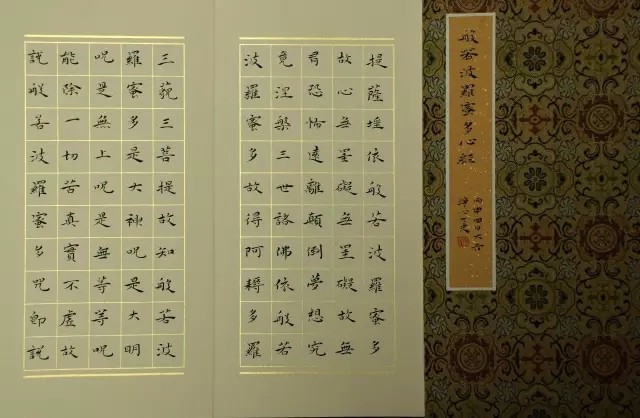 般若波羅蜜多心經
丙申
提薩埵依般若波羅蜜多
故心無罣礙無罣礙故無
有恐怖遠離顛倒夢想究
竟涅槃三世諸佛依般若
波羅蜜多故得阿耨多羅
三藐三菩提故知般若波
羅蜜多是大神呪是大明
呪是無上呪是無等等呪
能除一切苦真實不虛故
說般若波羅蜜多咒即說